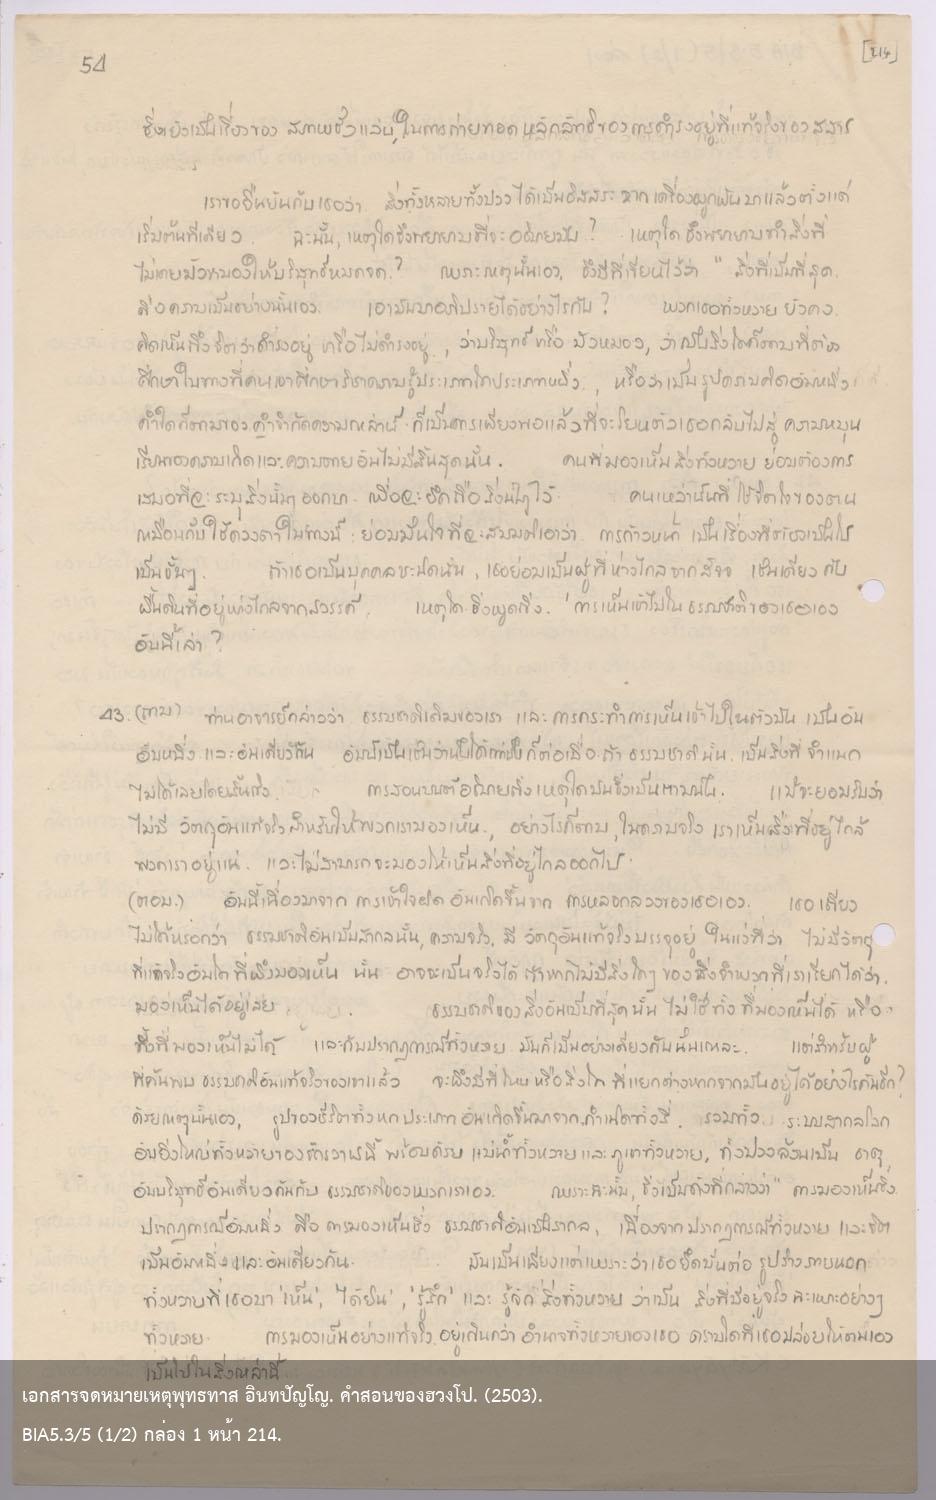 54
[214]
ซึ่งยังเป็นเรื่องของ สภาพชั่วแล่น, ในการถ่ายทอด หลักลัทธิของการดำรงอยู่ที่แท้จริงของ สสาร
เราขอยืนยันกับเธอว่า สิ่งทั้งหลายทั้งปวง ได้เป็นอิสสระ จากเครื่องผูกพันมาแล้วตั้งแต่
เริ่มต้นทีเดียว. ฉะนั้น, เหตุใดจึงพยายามที่จะอธิบายมัน? เหตุใดจึงพยายามทำสิ่งที่
ไม่เคยมัวหมองให้บริสุทธิ์หมดจด.? เพราะเหตุนั้นเอง, จึงมีที่เขียนไว้ว่า " สิ่งที่เป็นที่สุด.
คือความเป็นอย่างนั้นเอง. เอามันมาอภิปรายได้อย่างไรกัน? พวกเธอทั้งหลาย ยังคง
คิดเห็นถึงจิตว่าดำรงอยู่ หรือไม่ดำรงอยู่, ว่าบริสุทธิ์ หรือ มัวหมอง, ว่าเป็นสิ่งใดก็ตามที่ต้อง
ศึกษาในทางที่คนเขาศึกษาวิชาความรู้ประเภทใดประเภทหนึ่ง, หรือว่าเป็นรูปความคิดอันหนึ่ง
คำใดก็ตามของ คำจำกัดความเหล่านี้ ก็เป็นการเพียงพอแล้วที่จะโยนตัวเธอกลับไปสู่ ความหมุน
เวียนของความเกิดและความตายอันไม่มีสิ้นสุดนั้น. คนที่มองเห็นสิ่งทั้งหลาย ย่อมต้องการ
เสมอที่จะระบุสิ่งนั้นๆ ออกมา เพื่อจะยึดถือสิ่งนั้นๆไว้ คนเหล่านั้นที่ใช้จิตใจของตน
เหมือนกับใช้ดวงตาในทางนี้ ย่อมมั่นใจที่จะสมมติเอาว่า การก้าวหน้า เป็นเรื่องที่ต้องเป็นไป
เป็นขั้นๆ. ถ้าเธอเป็นบุคคลชะนิดนั้น, เธอย่อมเป็นผู้ที่ห่างไกลจากสัจจะ เช่นเดียวกับ
พื้นดินที่อยู่ห่างไกลจากสวรรค์. เหตุใดจึงพูดถึง. 'การเห็นเข้าไปในธรรมชาติของเธอเอง
อันนี้เล่า?
43. (ถาม) ท่านอาจารย์กล่าวว่า ธรรมชาติเดิมของเรา และ การกระทำการเห็นเข้าไปในตัวมัน เป็นอัน
อันหนึ่ง และอันเดียวกัน อันนี้เป็นเช่นว่านั้นได้ ก็ต่อเมื่อ ถ้า ธรรมชาตินั้น เป็นสิ่งที่ จำแนก
ไม่ได้เลยโดยสิ้นเชิง. การสอนขอต้องอธิบายถึงเหตุใดมันจึงเป็นตามนั้น. แม้จะยอมรับว่า
ไม่มี วัตถุอันแท้จริงสำหรับให้พวกเรามองเห็น., อย่างไรก็ตาม, ในความจริง เราเห็นสิ่งที่อยู่ใกล้
พวกเราอยู่แน่. และไม่สามารถจะมองให้เห็นสิ่งที่อยู่ไกลออกไป.
(ตอบ.) อันนี้เนื่องมาจาก การเข้าใจผิด อันเกิดขึ้นจาก การหลอกลวงของเธอเอง. เธอเถียง
ไม่ได้หรอกว่า ธรรมชาติอันเป็นสากลนั้น, ความจริง, มี วัตถุอันแท้จริงบรรจุอยู่ ในแง่ที่ว่า ไม่มีวัตถุ
ที่แท้จริงอันใด ที่พึงมองเห็น นั้น อาจจะเป็นจริงได้ ถ้าหากไม่มีสิ่งใดๆ ของสิ่งจำพวกที่เราเรียกได้ว่า.
มองเห็นได้อยู่เลย. ธรรมชาติของสิ่งอันเป็นที่สุดนั้น ไม่ใช่ทั้ง ที่มองเห็นได้ หรือ
ทั้งที่มองเห็นไม่ได้ และกับปรากฏการณ์ทั้งหลาย มันก็เป็นอย่างเดียวกันนั้นแหละ. แต่สำหรับผู้
ที่ค้นพบ ธรรมชาติอันแท้จริงของเขาแล้ว จะพึงมีที่ไหน หรือสิ่งใด ที่แยกต่างหากจากมันอยู่ได้อย่างไรกันอีก?
ด้วยเหตุนั้นเอง, รูปของชีวิตทั้งหกประเภท อันเกิดขึ้นมาจากกำเนิดทั้งสี่, รวมทั้ง ระบบสากลโลก
อันยิ่งใหญ่ทั้งหลายของจักรวาฬนี้ พร้อมด้วย แม่น้ำทั้งหลายและ ภูเขาทั้งหลาย, ทั้งปวงล้วนเป็น ธาตุ
อันบริสุทธิ์อันเดียวกันกับ ธรรมชาติของพวกเราเอง. เพราะฉะนั้น, จึงเป็นดังที่กล่าวว่า " การมองเห็นซึ่ง
ปรากฏการณ์อันหนึ่ง คือ การมองเห็นซึ่ง ธรรมชาติอันเป็นสากล, เนื่องจากปรากฏการณ์ทั้งหลาย และจิต
เป็นอันหนึ่งและอันเดียวกัน. มันเป็นเพียงแต่เพราะว่าเธอยึดมั่นต่อ รูปร่างภายนอก
ทั้งหลายที่เธอมา 'เห็น', 'ได้ยิน', 'รู้สึก' และ รู้จัก สิ่งทั้งหลาย ว่าเป็น สิ่งที่มีอยู่จริง ฉะเพาะอย่างๆ
ทั้งหลาย. การมองเห็นอย่างแท้จริง อยู่เกินกว่า อำนาจทั้งหลายของเธอ ตราบใดที่เธอปล่อยให้ตนเอง
เป็นไปในสิ่งเหล่านี้
เอกสารจดหมายเหตุพุทธทาส อินทปัญโญ. คำสอนของฮวงโป. (2503).
BIA5.3/5 (1/2) กล่อง 1 หน้า 214.